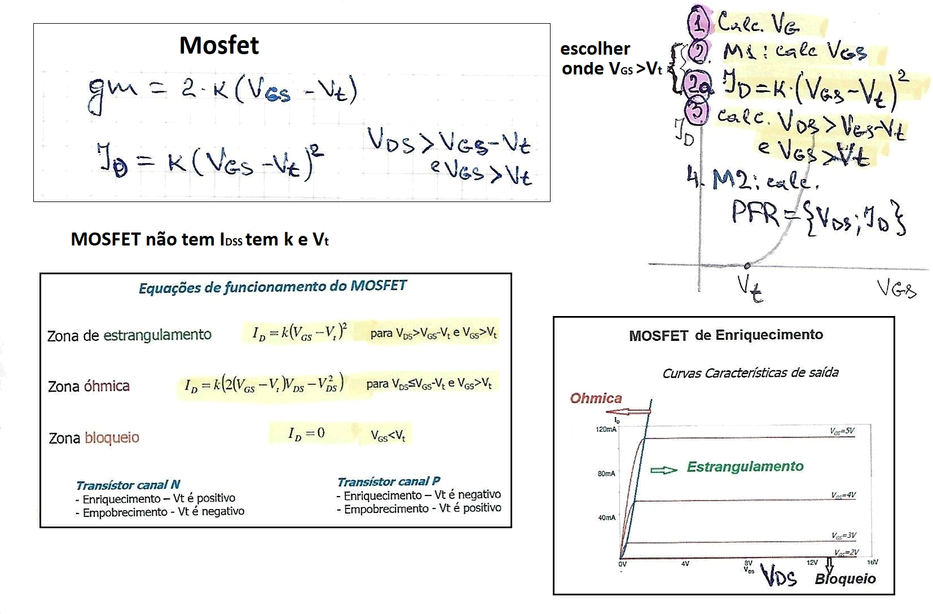 Mosfet
gm = 2·K(VGS - Vt)
ID = K(VGS - Vt)²
VDS > VGS - Vt
e VGS > Vt
escolher
onde VGS >Vt
1 Calc. VG
2. M1: calc VGS
2a. ID = K·(VGS - Vt)²
3. calc. VDS > VGS - Vt
e VGS > Vt
4. M2: calc.
PFR = {VDS; ID}
ID
Vt
VGS
MOSFET não tem IDSS tem k e Vt
Equações de funcionamento do MOSFET
Zona de estrangulamento ID = k(VGS − Vt)² para VDS>VGS-Vt e VGS>Vt
Zona óhmica ID = k(2(VGS − Vt)VDS − VDS²) para VDS≤VGS-Vt e VGS>Vt
Zona bloqueio ID = 0 VGS<Vt
Transístor canal N
- Enriquecimento – Vt é positivo
- Empobrecimento - Vt é negativo
Transístor canal P
- Enriquecimento – Vt é negativo
- Empobrecimento - Vt é positivo
MOSFET de Enriquecimento
Curvas Características de saída
Ohmica
ID
120mA
VGS=5V
Estrangulamento
80mA
VGS=4V
40mA
VGS=3V
VGS=2V
0V 4V 8V 12V 16V
VDS
VDS
Bloqueio